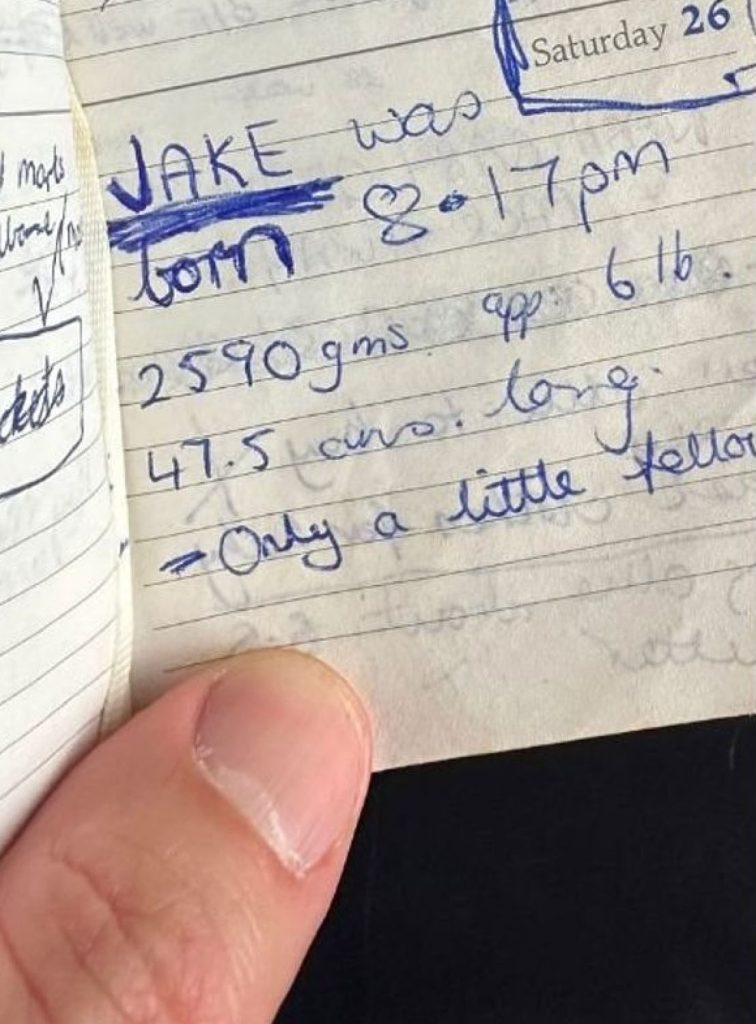 Saturday 26
JAKE was
born 8.17pm
2590 gms. app. 6 lb.
47.5 cms. long.
- Only a little fellow
marts